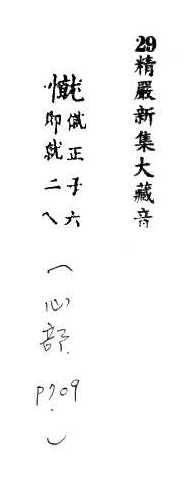 29精嚴新集大藏音
正子六
即就二乀
(心部 P709)